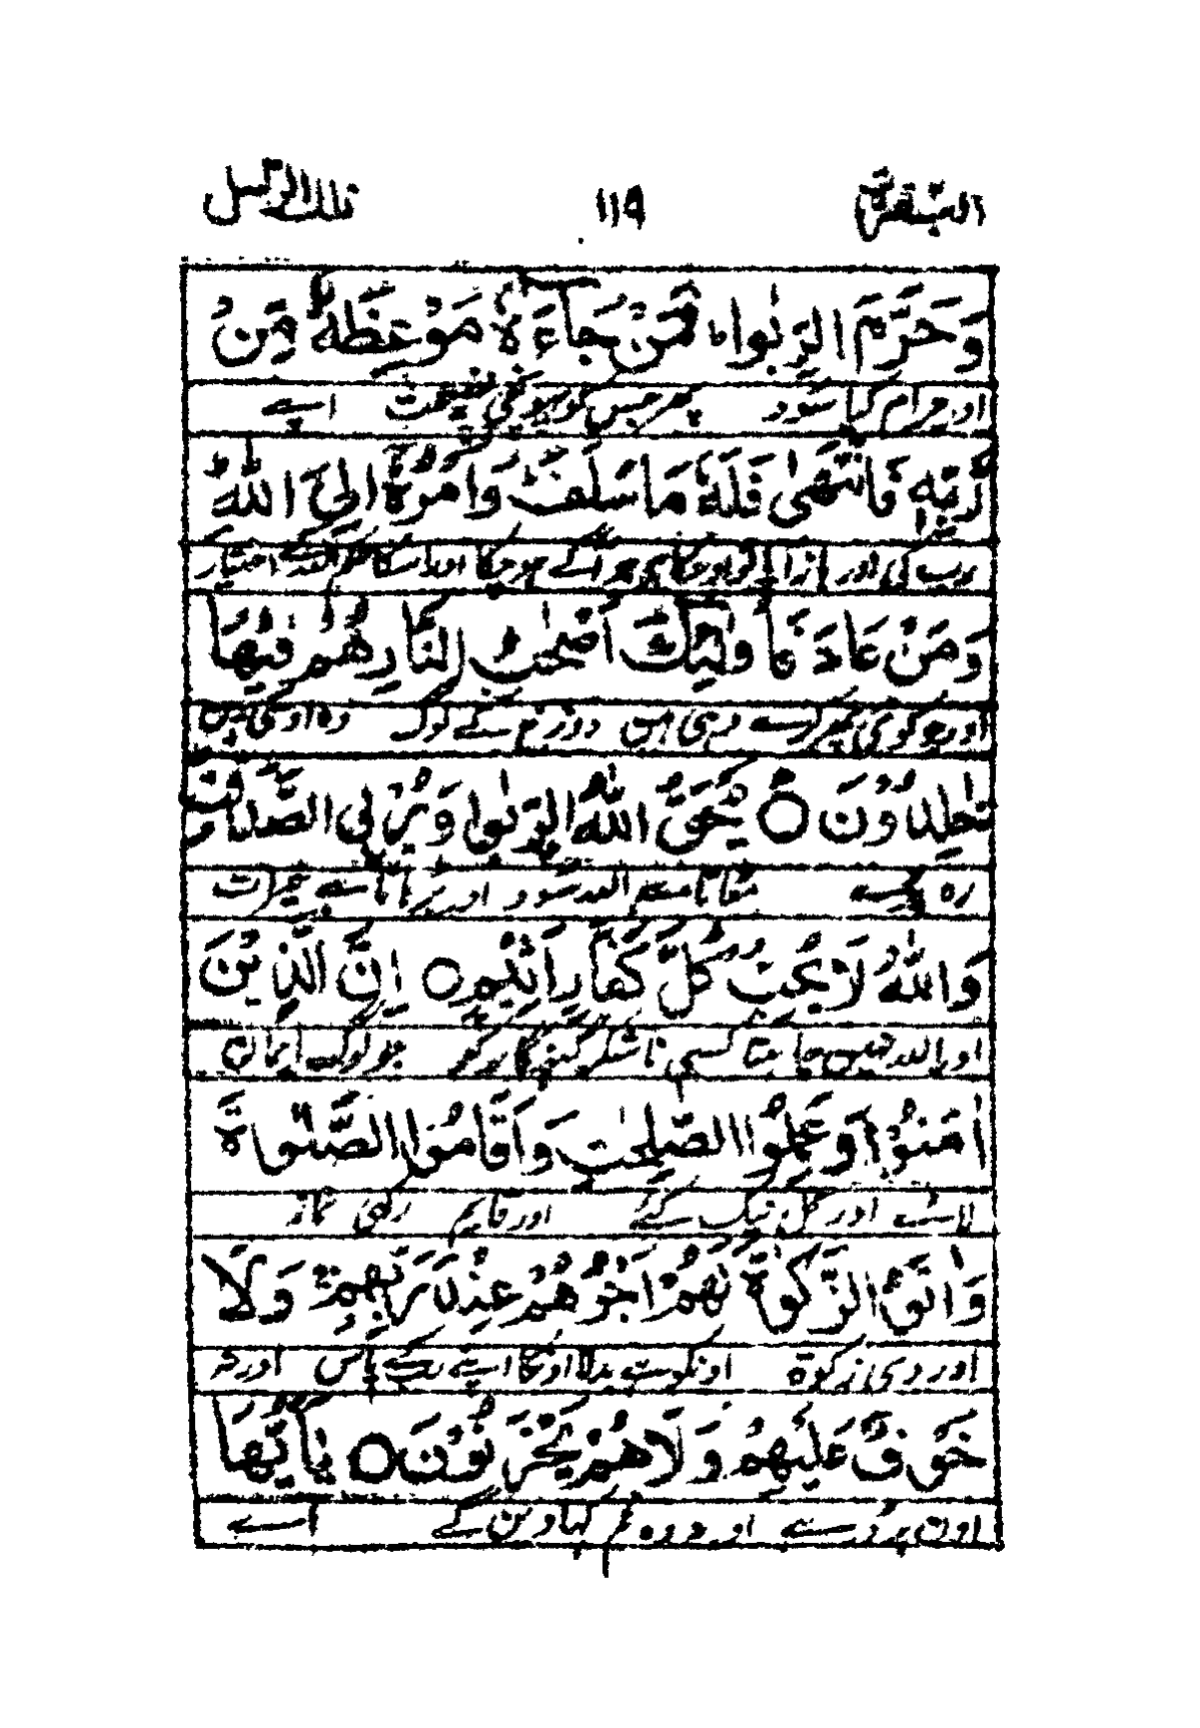 البقرة ١١٩ تلك الرسل
وَحَرَّمَ الرِّبٰوا ۚ فَمَنْ جَآءَهٗ مَوْعِظَةٌ مِّنْ
اور حرام کیا سود پھر جس کو پہونچی نصیحت اپنے
رَّبِّهٖ فَانْتَهٰى فَلَهٗ مَا سَلَفَ ؕ وَاَمْرُهٗٓ اِلَى اللّٰهِ ؕ
رب کی اور باز آیا آگے ہوچکا اور اسکا حکم اللہ کے اختیار
وَمَنْ عَادَ فَاُولٰٓئِكَ اَصْحٰبُ النَّارِ هُمْ فِيْهَا
اور جو کوئی پھر کرے وہی ہیں دوزخ کے لوگ وہ اوسی میں
خٰلِدُوْنَ ○ يَمْحَقُ اللّٰهُ الرِّبٰوا وَيُرْبِى الصَّدَقٰتِ
رہ پڑے مٹاتا ہے اللہ سود اور بڑہاتا ہے خیرات
وَاللّٰهُ لَا يُحِبُّ كُلَّ كَفَّارٍ اَثِيْمٍ ○ اِنَّ الَّذِيْنَ
اور اللہ نہیں چاہتا کسی ناشکر گنہگار کو جو لوگ ایمان
اٰمَنُوْا وَعَمِلُوا الصّٰلِحٰتِ وَاَقَامُوا الصَّلٰوةَ
لائے اور عمل نیک کئے اور قایم رکھی نماز
وَاٰتَوُا الزَّكٰوةَ لَهُمْ اَجْرُهُمْ عِنْدَ رَبِّهِمْ ۚ وَلَا
اور دی زکوة اونکو ہے بدلا اونکا اپنے رب کے پاس اور نہ
خَوْفٌ عَلَيْهِمْ وَلَا هُمْ يَحْزَنُوْنَ ○ يٰٓاَيُّهَا
اون پر ڈر ہے اور نہ وہ غم کہاوین گے اے